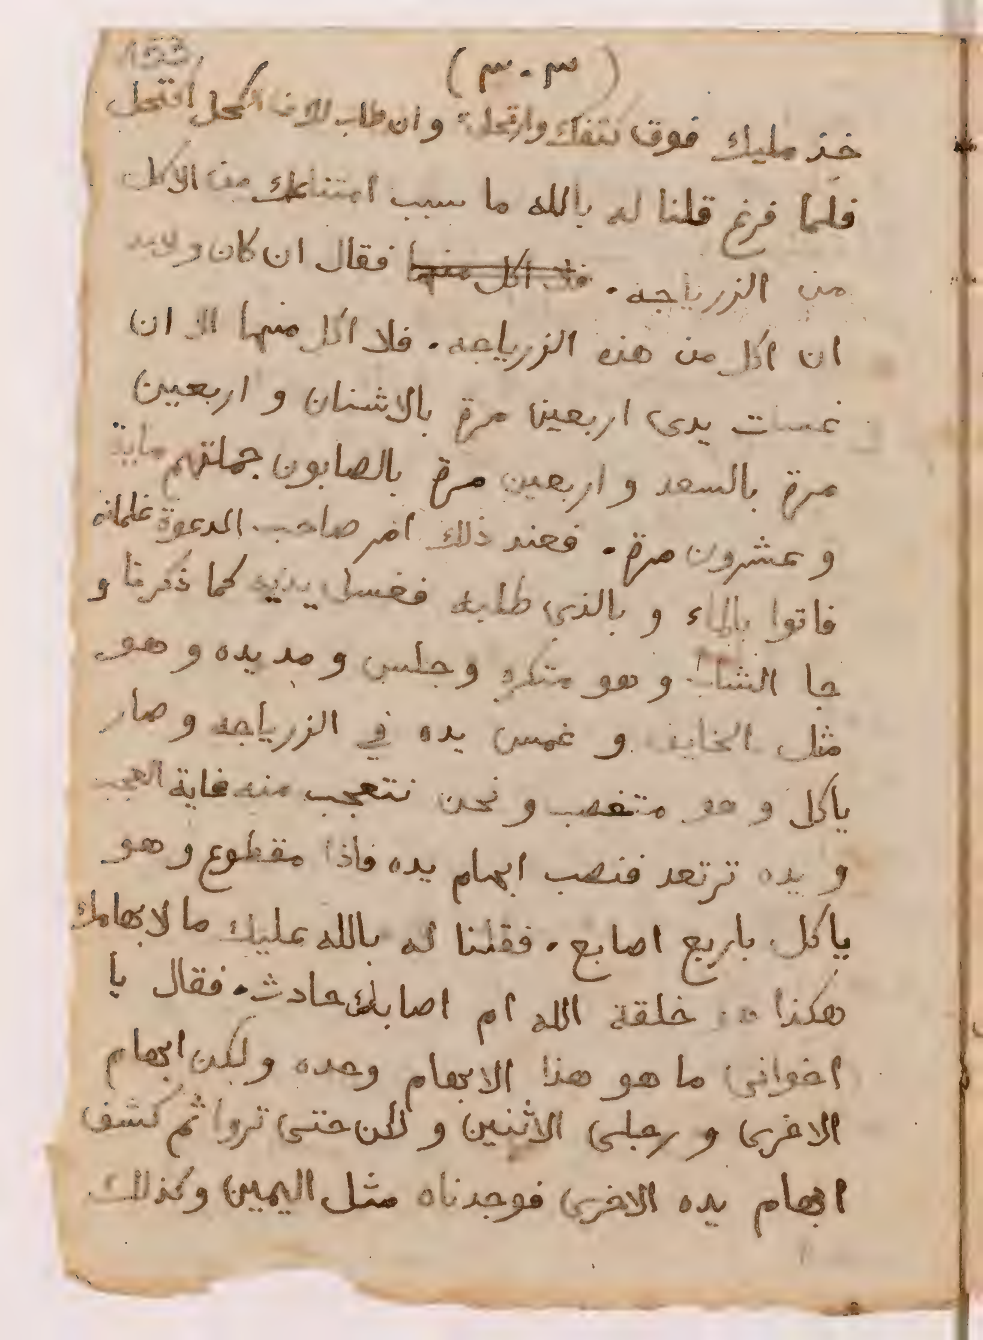 153
(٣٠٣)
خذ مليك فوق كتفك وارتحل وان طاب للانف الكحل اكتحل
فلما فرغ قلنا له بالله ما سبب امتناعك من الاكل
من الزرباجه. فلا اكل منها فقال ان كان ولابد
ان اكل من هذه الزرباجه. فلا اكل منها الا ان
غسلت يدى اربعين مرة بالاشنان و اربعين
مرة بالسعد و اربعين مرة بالصابون جملتهم ماية
و عشرون مرة. فعند ذلك امر صاحب الدعوة غلمانه
فاتوا بالماء و بالذي طلبه فغسل يديه كما ذكرنا و
جا الشاب و هو متكره وجلس و مد يده و هو
مثل الخايف و غمس يده في الزرباجه و صار
ياكل و هو متغصب و نحن نتعجب منه غاية العجب
و يده ترتعد فنصب ابهام يده فاذا مقطوع و هو
ياكل باربع اصابع. فقلنا له بالله عليك ما لابهامك
هكذا هو خلقة الله ام اصابك حادث. فقال يا
اخوانى ما هو هذا الابهام وحده ولكن ابهام
الاخرى و رجلى الاثنين و لكن حتى تروا ثم كشف
ابهام يده الاخرى فوجدناه مثل اليمين وكذلك